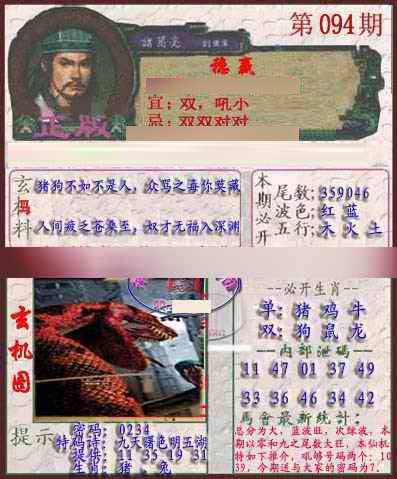 第094期
諸葛亮
稳赢
宜：双，吼小
忌：双双对对
正版
玄机料
猪狗不如不是人，众骂之毒你莫藏
人间疲之苍桑至，奴才无福入深渊
本期必开
尾数：359046
波色：红 蓝
五行：木 火 土
玄机图
必开生肖
单：猪 鸡 牛
双：狗 鼠 龙
内部泄码
11 47 01 37 49
33 36 46 34 42
馬會最新統计：
总分为大，蓝波旺，次绿波，本
期以零和九之尾数大旺，本仙机
特如下推介，吼够号码两个：10
39，今期送与大家的密码为7．
提示
密码：0234
特码诗：九天曙色明五湖
提供：11 35 19 31
生肖：猪 。兔